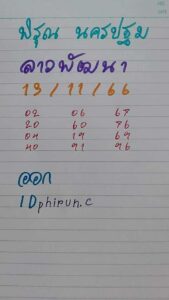 พิรุณ นครปฐม
ลาวพัฒนา
13 / 11 / 66
02 06 67
20 60 76
04 19 69
40 91 96
ออก
IDphirun.c